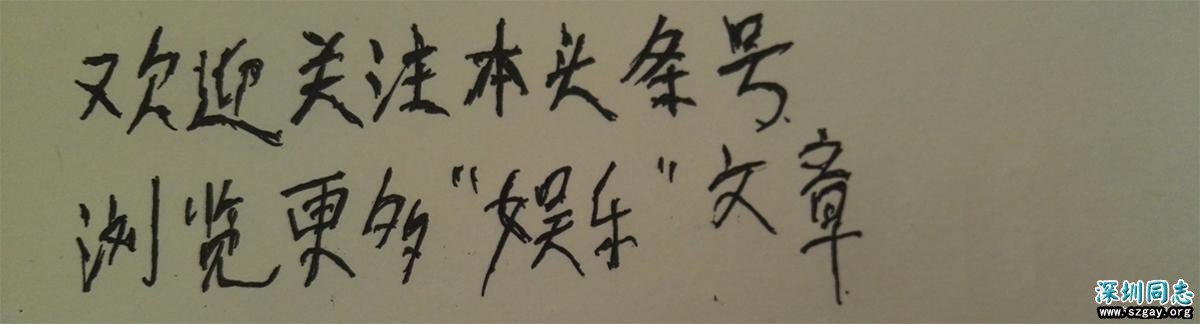 欢迎关注本头条号
浏览更多"娱乐"文章
深圳同志
www.szgay.org